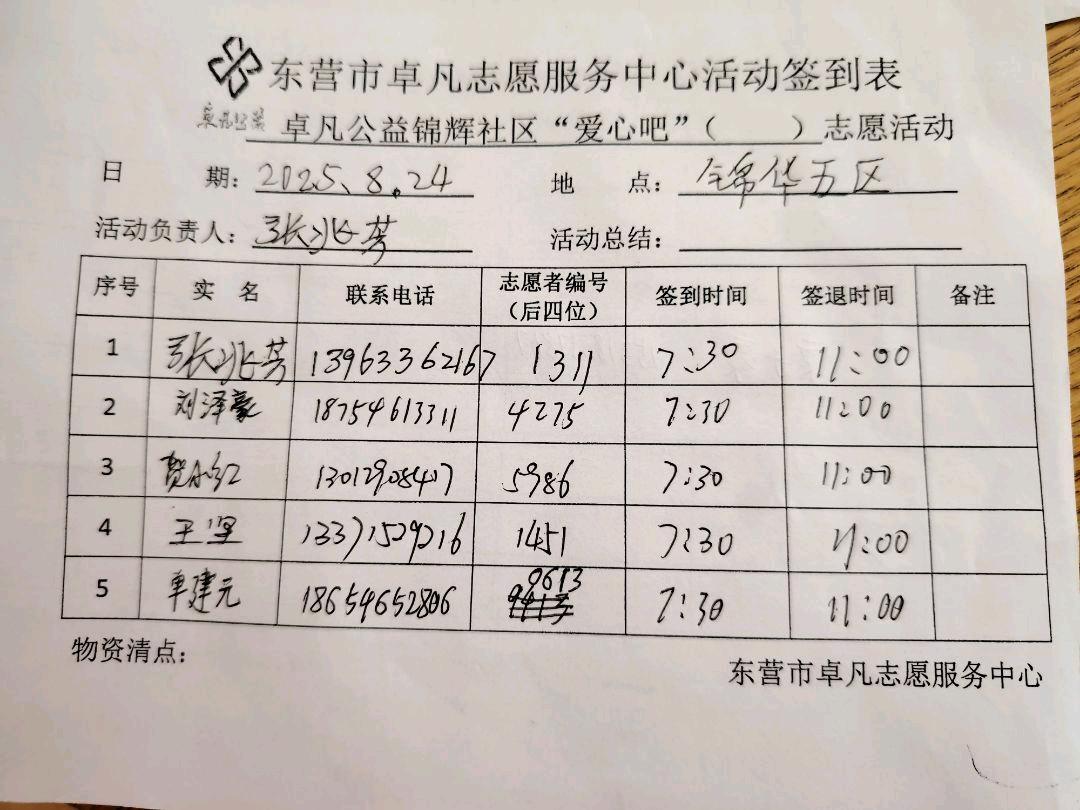 东营市卓凡志愿服务中心活动签到表
卓凡公益
卓凡公益锦辉社区“爱心吧”(    )志愿活动
日 期: 2025、8.24 地 点: 锦华五区
活动负责人: 张兆芳 活动总结:
序号 实 名 联系电话 志愿者编号(后四位) 签到时间 签退时间 备注
1 张兆芳 13963362167 1311 7:30 11:00
2 刘泽豪 18754613311 4275 7:30 11:00
3 贺小红 13012908407 5986 7:30 11:00
4 王坚 13371529216 1451 7:30 11:00
5 单建元 18654652806 0613 7:30 11:00
物资清点:
东营市卓凡志愿服务中心